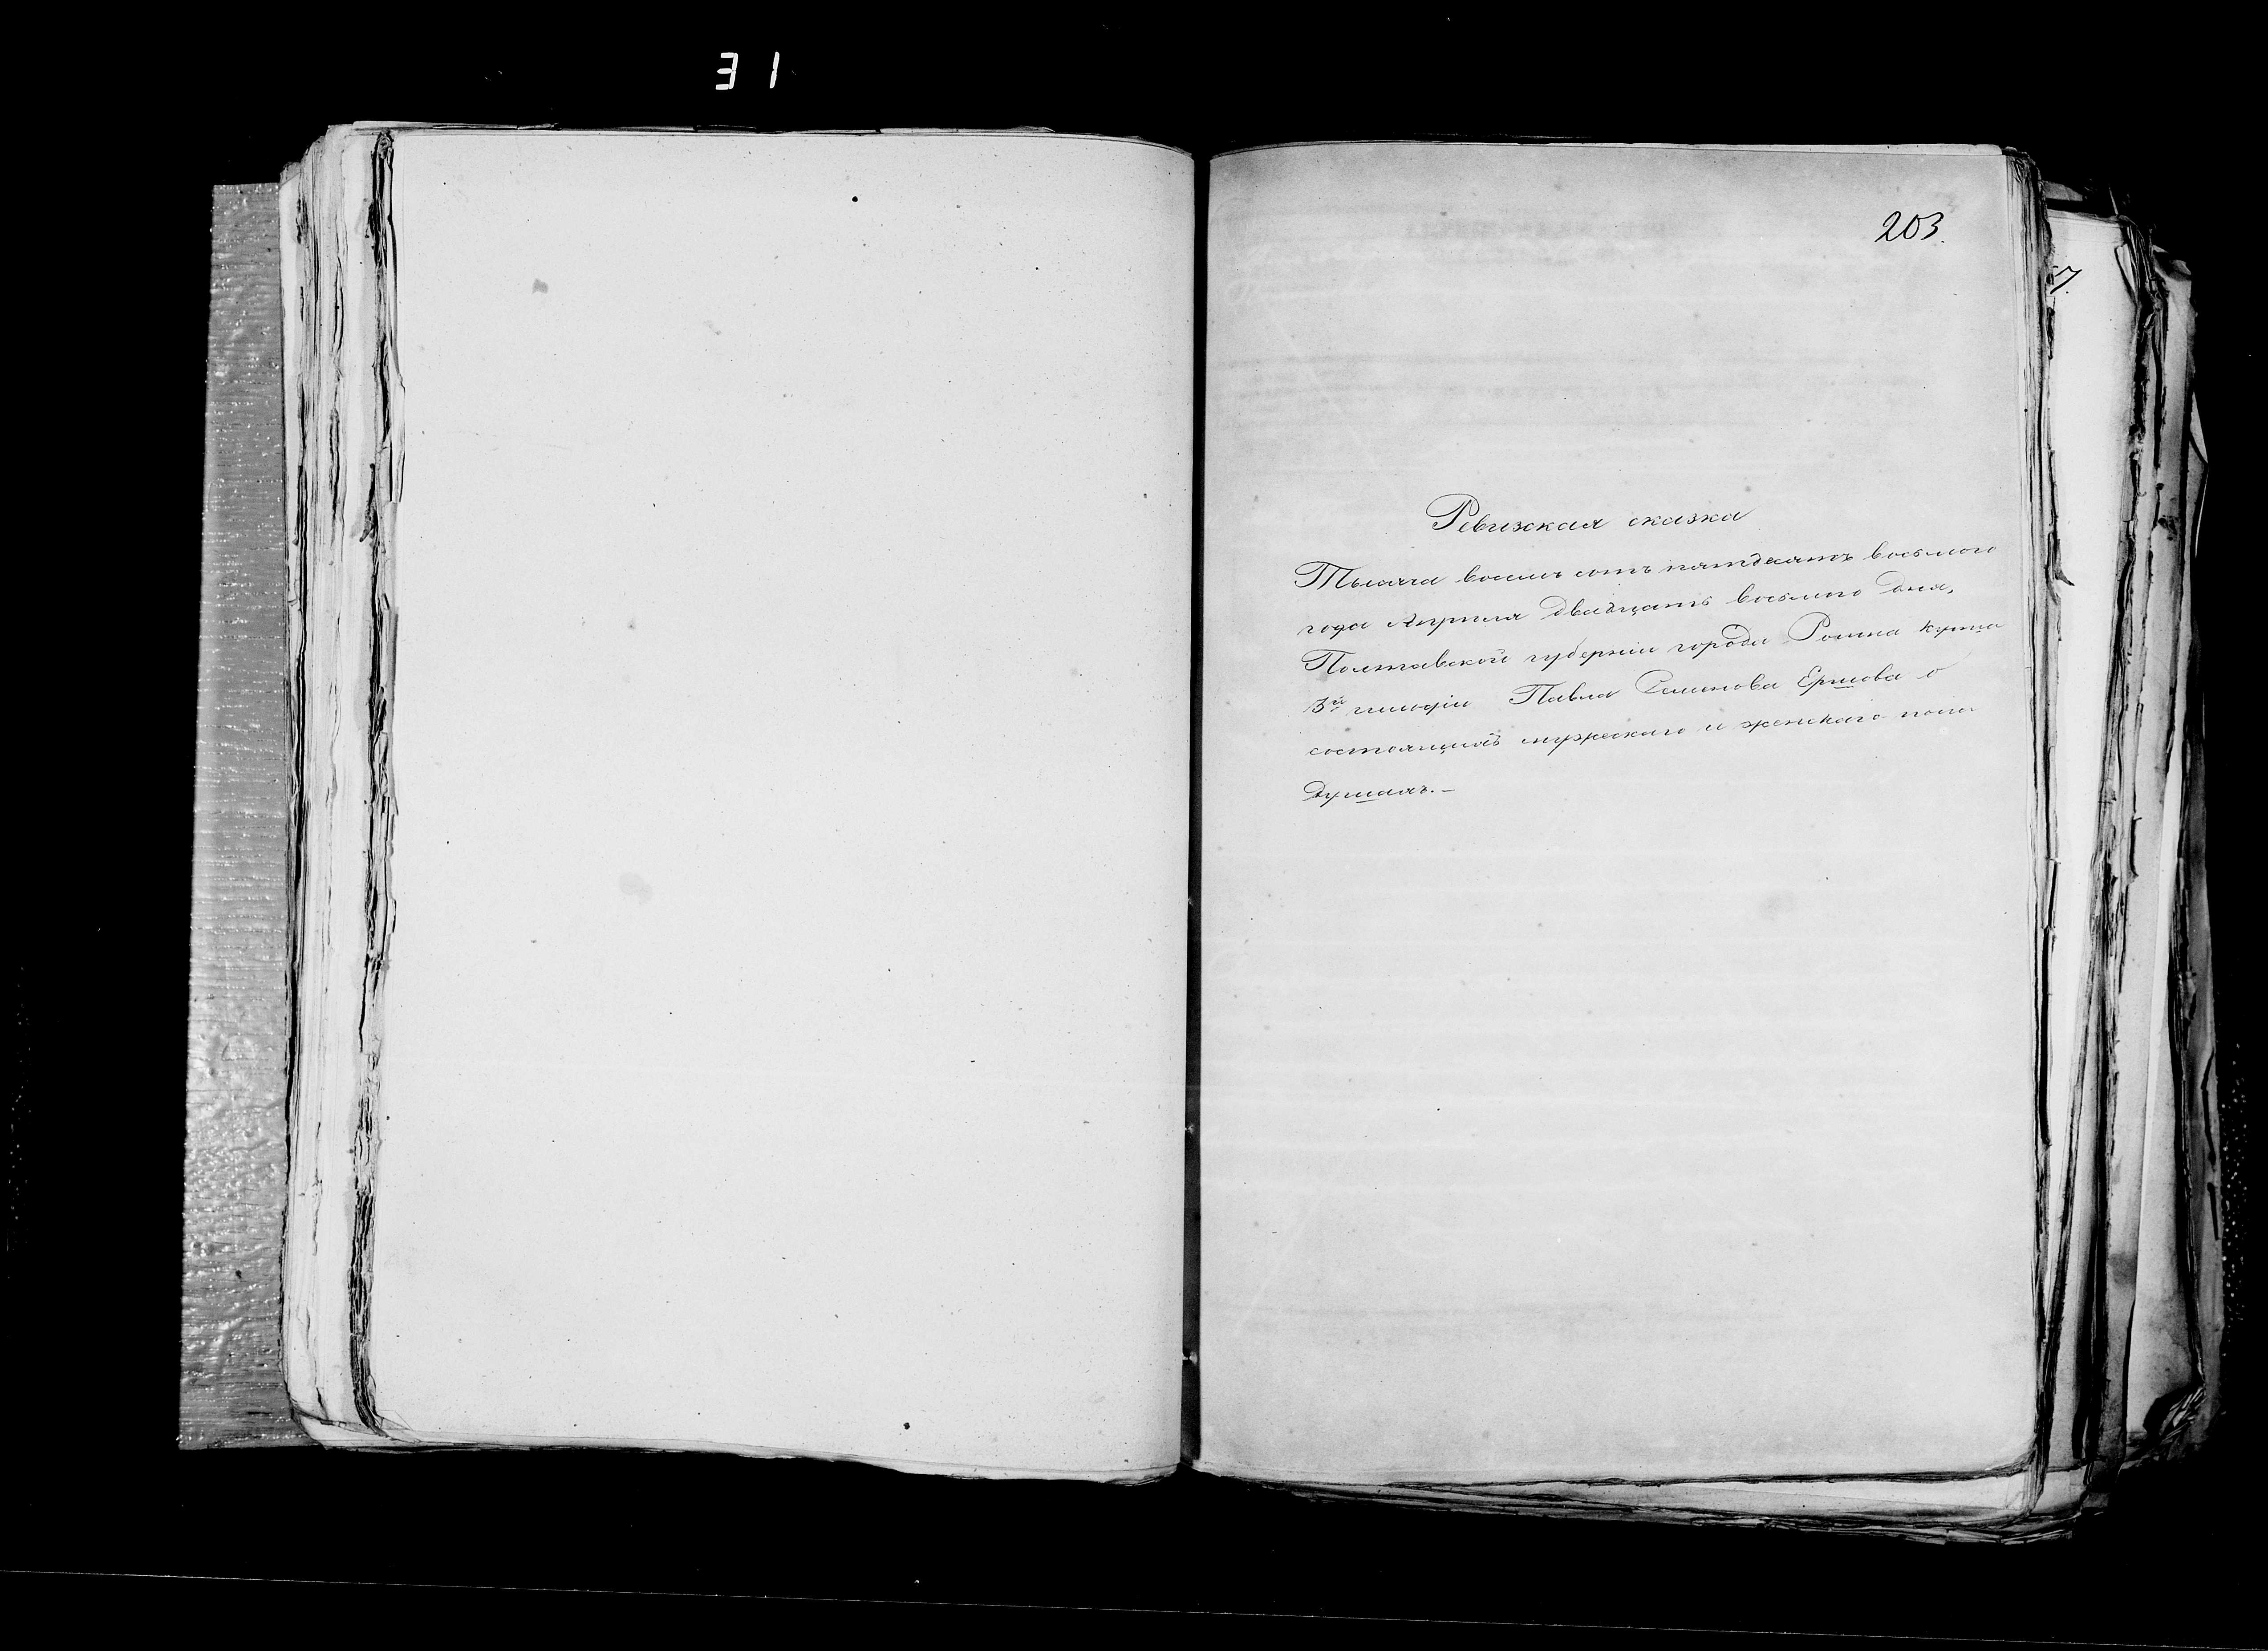 31
203.
57.
Ревизская сказка
Тысяча восемь сотъ пятдесятъ восьмого
года Апреля двадцать восьмого дня,
Полтавской губерніи города Ромна купца
3й гильдіи Павла Семенова Ершова о
состоящихъ мужескаго и женскаго пола
душахъ.-